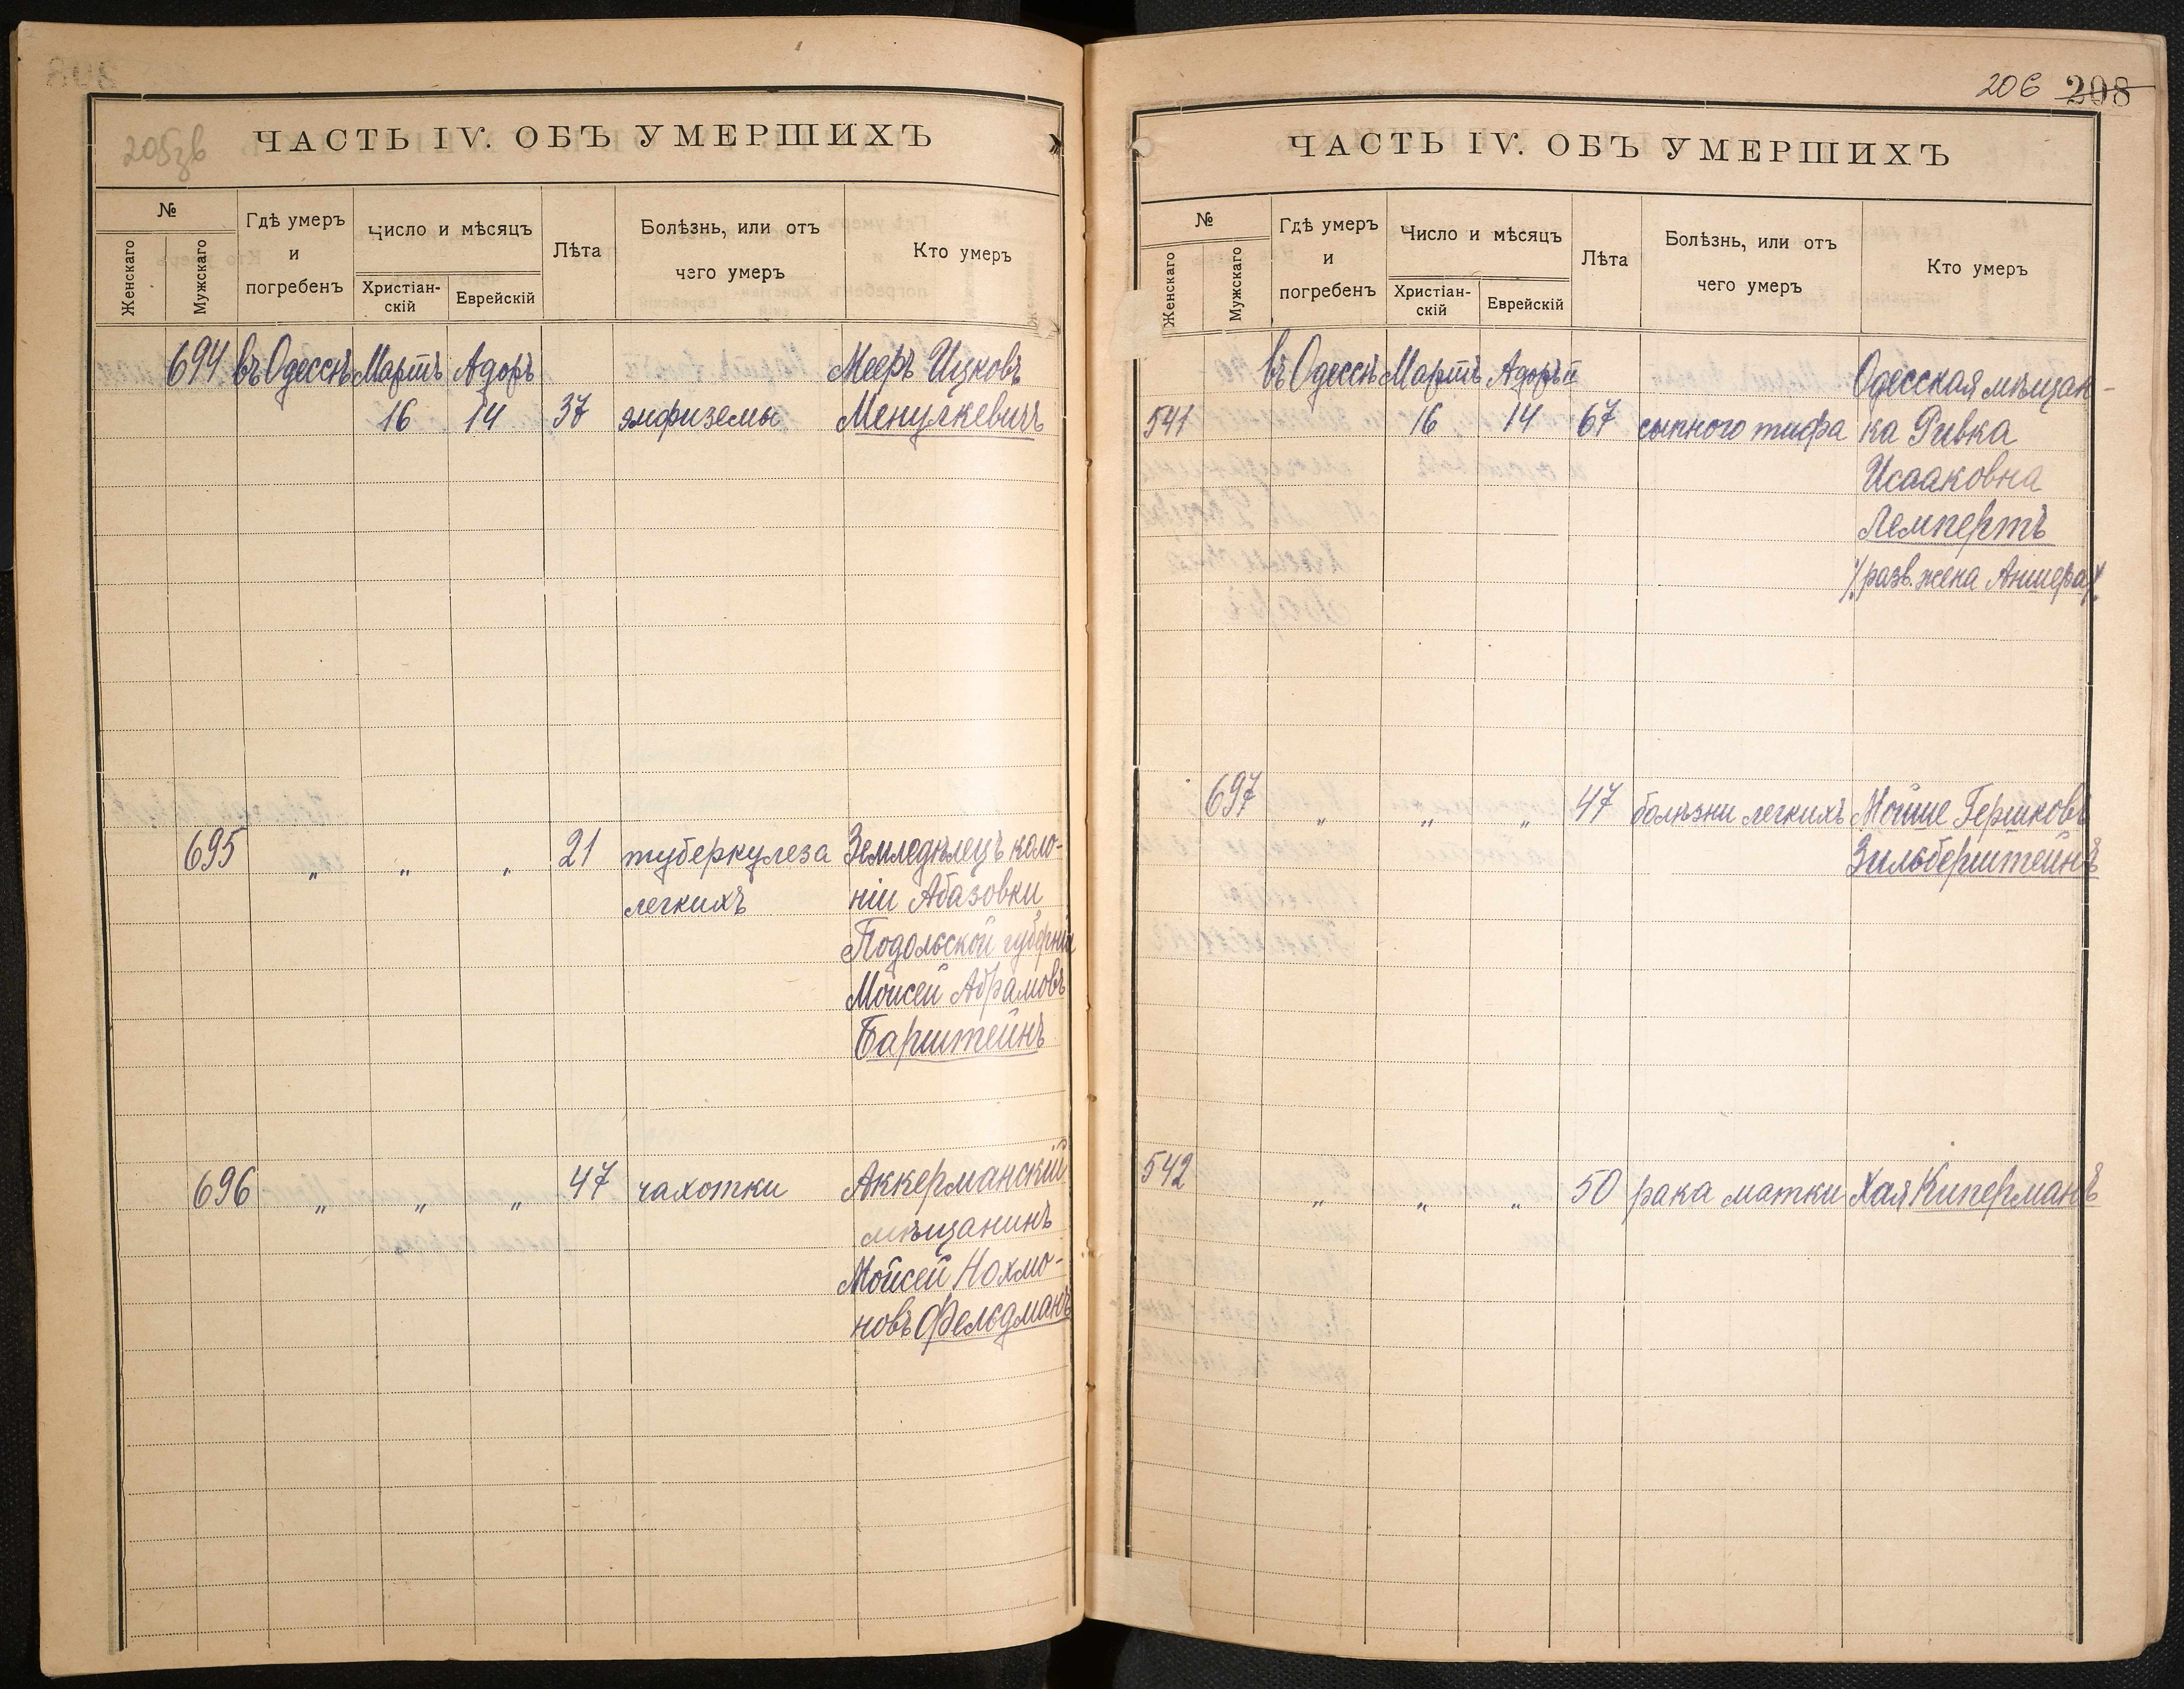 205зв
ЧАСТЬ IV. ОБЪ УМЕРШИХЪ
№
Женскаго
Мужскаго
Гдѣ умеръ
и
погребенъ
Число и мѣсяцъ
Христіан-
скій
Еврейскій
Лѣта
Болѣзнь, или отъ
чего умеръ
Кто умеръ
694 въ Одессѣ Мартъ Адоръ Мееръ Ицковъ
16 14 37 эмфиземы Менулкевичъ
695 " " " 21 туберкулеза Земледѣлецъ коло-
легкихъ ніи Абазовки
Подольской губерніи
Моисей Абрамовъ
Барштейнъ
696 " " " 47 чахотки Аккерманскій
мѣщанинъ
Мойсей Нохмо-
новъ Фельдманъ
206 208
ЧАСТЬ IV. ОБЪ УМЕРШИХЪ
№
Женскаго
Мужскаго
Гдѣ умеръ
и
погребенъ
Число и мѣсяцъ
Христіан-
скій
Еврейскій
Лѣта
Болѣзнь, или отъ
чего умеръ
Кто умеръ
въ Одессѣ Мартъ Адоръ Одесская мѣщан-
541 16 14 67 сыпного тифа ка Ривка
Исааковна
Лемпертъ
/разв. жена Аншера/
697 " " " 47 болѣзни легкихъ Мойше Гершковъ
Зильберштейнъ
542 " " " 50 рака матки Хая Киперманъ